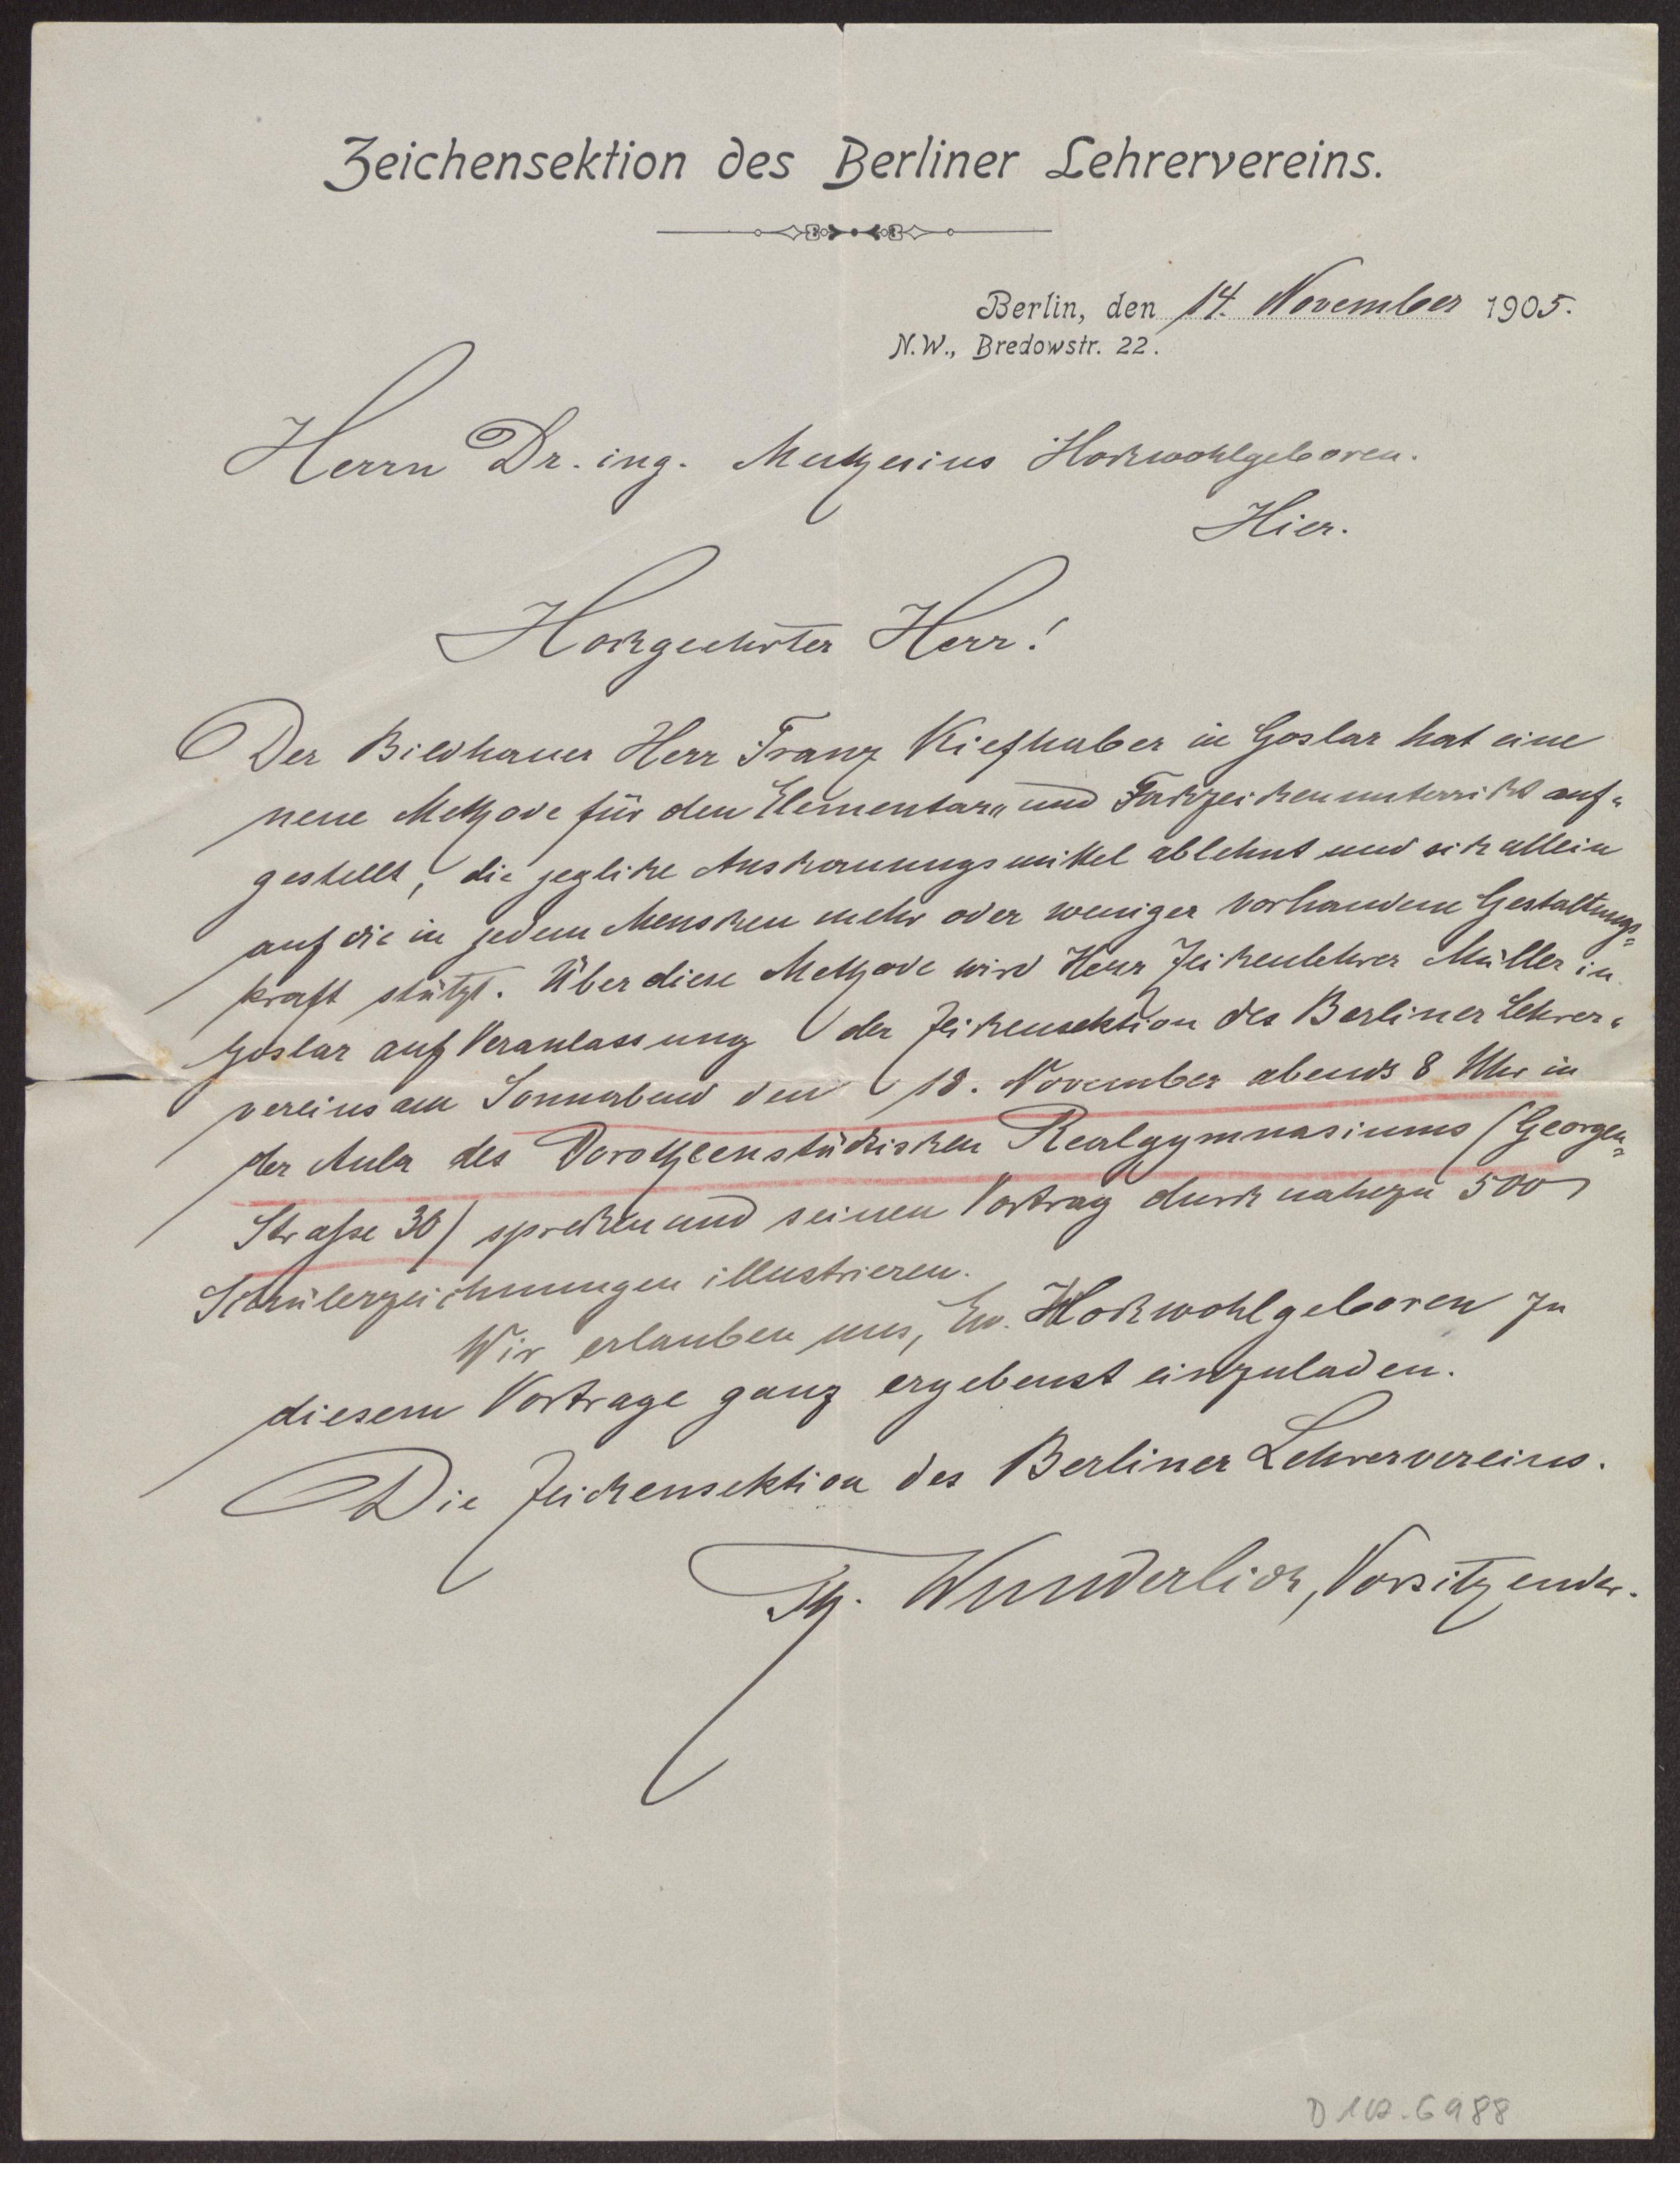 Zeichensektion des Berliner Lehrervereins.
Berlin, den 14. November 1905.
N.W., Bredowstr. 22.
Herrn Dr. ing. Muthesius Hochwohlgeboren.
Hier.
Hochgeehrter Herr!
Der Bildhauer Herr Franz Kiefhaber in Goslar hat eine
neue Methode für den Elementar- und Fachzeichenunterricht auf-
gestellt, die jegliche Anschauungsmittel ablehnt und sich allein
auf die in jedem Menschen mehr oder weniger vorhandene Gestaltungs-
kraft stützt. Über diese Methode wird Herr Zeichenlehrer Müller in
Goslar auf Veranlassung der Zeichensektion des Berliner Lehrer-
vereins am Sonnabend den 18. November abends 8 Uhr in
der Aula des Dorotheenstädtischen Realgymnasiums (Georgen-
Strasse 30) sprechen und seinen Vortrag durch nahezu 500
Schülerzeichnungen illustrieren.
Wir erlauben uns, Ew. Hochwohlgeboren zu
diesem Vortrage ganz ergebenst einzuladen.
Die Zeichensektion des Berliner Lehrervereins.
Th. Wunderlich, Vorsitzender.
D 102-6988